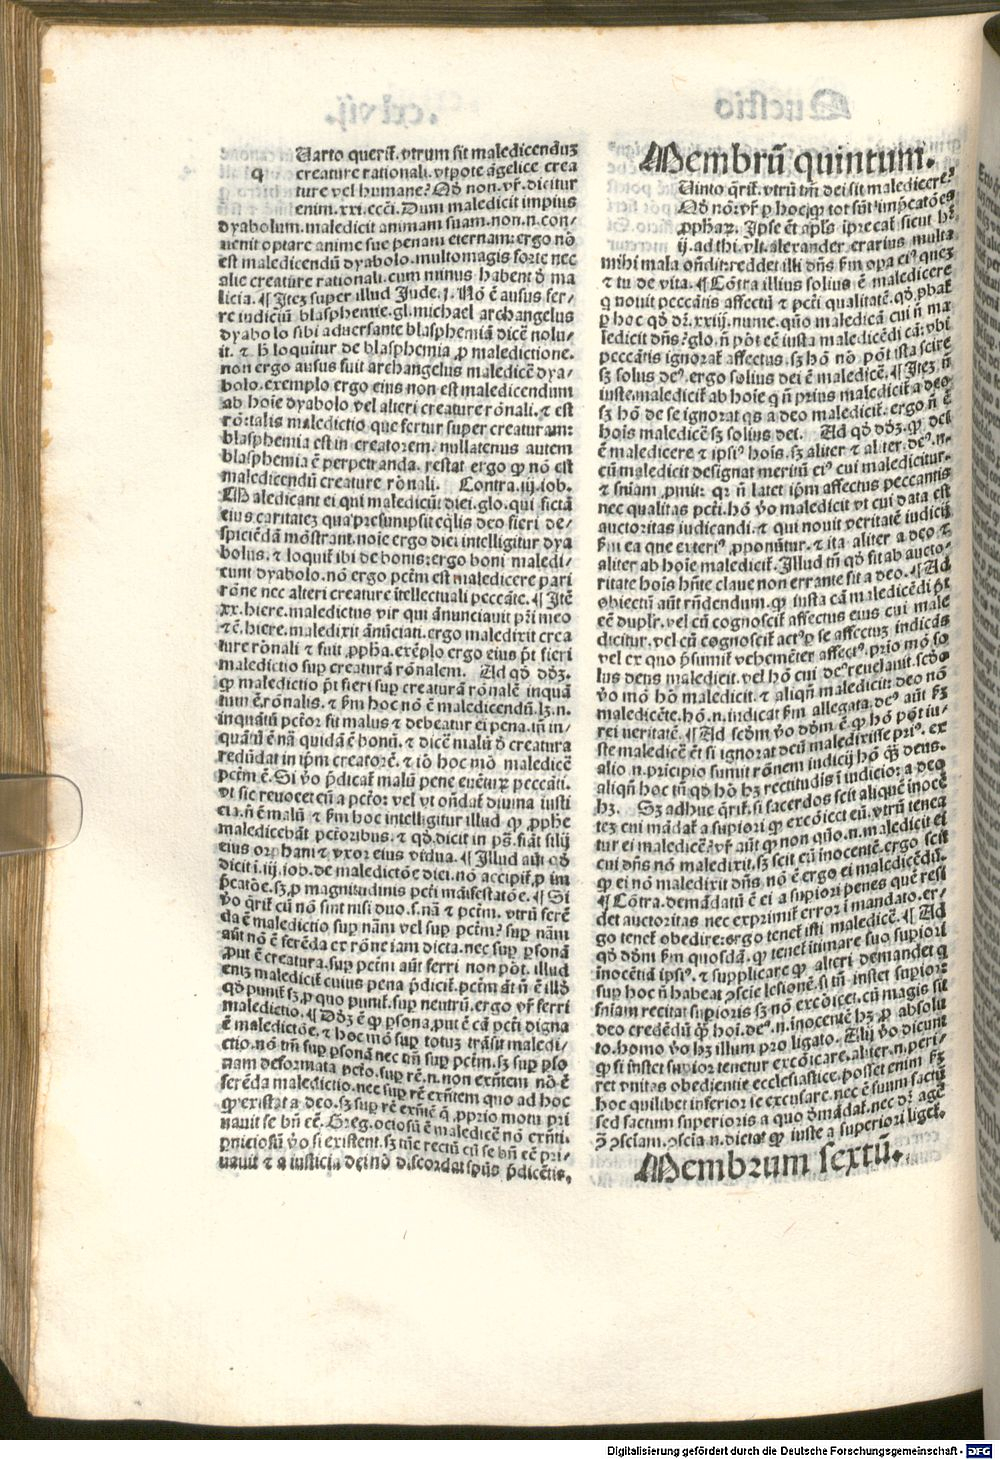 q Uarto querit᷑.vtrum sit maledicendū
creature rationali.vtpote āgelice crea
ture vel humane? Qď non.vr̄.dicitur
enim.xxi.ecc̄i.Dum maledicit impius
dyabolum.maledicit animam suam.non.n.con-
uenit optare anime sue penam eternam:ergo nō
est maledicendū dyabolo.multomagis forte nec
alie creature rationali.cum minus habent ď ma
licia.¶ Itez super illud Jude.j.Nō ē ausus fer-
re iudiciū blasphemie.gl.michael archangelus
dyabolo sibi aduersante blasphemiā dicē nolu-
it.⁊ h̄ loquitur de blasphemia ꝓ maledictione.
non ergo ausus fuit archangelus maledicē dya-
bolo.exemplo ergo eius non est maledicendum
ab hoīe dyabolo vel alteri creature rōnali.⁊ est
rō:talis maledictio que fertur super creaturam:
blasphemia est in creatorem.nullatenus autem
blasphemia ē perpetranda.restat ergo ꝙ nō est
maledicendū creature rōnali. Contra.iij.iob.
Maledicant ei qui maledicūt diei.glo.qui fictā
eius caritatez qua presumpsit eq̄lis deo fieri de-
spiciēdā mōstrant.noīe ergo diei intelligitur dya
bolus.⁊ loquit᷑ ibi de bonis:ergo boni maledi-
cunt dyabolo.nō ergo pctm̄ est maledicere pari
rōne nec alteri creature ītellectuali peccāte.¶ Itē
xx.hiere.maledictus vir qui ānunciauit pr̄i meo
⁊c̄.hiere.maledixit ānūciati.ergo maledixit crea
ture rōnali ⁊ fuit ꝓpha.exēplo ergo eius pt̄ fieri
maledictio suꝑ creaturā rōnalem. Ad qď dōz.
ꝙ maledictio pt̄ fieri suꝑ creaturā rōnalē inquā
tum ē rōnalis.⁊ ẜm hoc nō ē maledicendū.lꝫ.n.
inquātū pctōr sit malus ⁊ debeatur ei pena.īn in-
quātū ē nā quidā ē bonū.⁊ dicē malū ď creatura
redūdat in ip̄m creatorē.⁊ iō hoc mō maledicē
pctm̄ ē.Si v̄o p̄dicat᷑ malū pene euētur̄ peccāti.
vt sic reuocet eū a pctō:vel vt ōndat᷑ diuina iusti
cia.n̄ ē malū ⁊ ẜm hoc intelligitur illud ꝙ ꝓphe
maledicebāt pctōribus.⁊ qď dicit in ps̄.fiāt filij
eius orphani ⁊ vxor eius vidua.¶ Illud aūt qď
dicit ī.iij.iob.de maledictōe diei.nō accipit᷑ ꝓ im
p̄catōe.sꝫ ꝓ magnitudinis pcti māifestatōe.¶ Si
v̄o q̄rit᷑ cū nō sint nisi duo.s.nā ⁊ pctm̄.vtrū ferē
da ē maledictio suꝑ nām vel suꝑ pctm̄? suꝑ nām
aūt nō ē ferēda ex rōne iam dicta.nec suꝑ ꝑsonā
ꝓut ē creatura.suꝑ pctm̄ aūt ferri non pōt.illud
eniꝫ maledicit᷑ cuius pena p̄dicit᷑.pctm̄ āt n̄ ē illď
qď punit᷑ sꝫ ꝓ quo punit᷑.suꝑ neutrū.ergo vr̄ ferri
maledictio.¶ Dōꝫ ē ꝙ ꝑsona.put ē cā pcti digna
ē maledictōe.⁊ hoc mō suꝑ totuꝫ trāsit maledi-
ctio.nō tm̄ suꝑ ꝑsonā nec tm̄ suꝑ pctm̄.sꝫ suꝑ ꝑso
nam deformata pctō.suꝑ rē.n.non exn̄tem nō ē
ferēda maledictio.nec suꝑ rē exn̄tem quo ad hoc
ꝙ existat a deo.sꝫ suꝑ rē exn̄tē q̄ ꝓprio motu pri
uauit se bn̄ eē. Greg.ociosū ē maledicē nō exn̄ti.
ꝑniciosū v̄o si existent.sꝫ tūc rectū cū se bn̄ eē pri-
uauit ⁊ a iusticia dei nō discordat sp̄us p̄dicētis.
Membrū quintum.
Uinto q̄rit᷑.vtrū tm̄ dei sit maledicere?
Qď nō:vr̄ ꝑ hoc ꝙ tot sūt imp̄catōes
ꝓphaꝝ. Ipse ēt apl̄s ip̄recat᷑ sicut hꝫ
ij.ad thi.vlt.alexander erarius multa
mihi mala on̄dit:reddet illi dn̄s ẜm opa ei⁹ queꝫ
⁊ tu de vita.¶ Cōtra illius solius ē maledicere
q nouit peccātis affectū ⁊ pcti qualitatē.qď ꝓhat᷑
ꝑ hoc qď dr̄.xxiij.nume.quō maledicā cui n̄ ma
ledicit dn̄s? glo.n̄ pōt eē iusta maledicēdi cā:vbi
peccātis ignorat᷑ affectus.sꝫ hō nō pōt ista scire
sꝫ solus de⁹.ergo solius dei ē maledicē.¶ Iteꝫ n̄
iuste maledicit᷑ ab hoīe q n̄ prius maledicit᷑ a deo
sꝫ hō de se ignorat qs a deo maledicit᷑.ergo n̄ ē
hoīs maledicē sꝫ solius dei. Ad qď dōꝫ.ꝙ dei
ē maledicere ⁊ ipsi⁹ hoīs.sꝫ aliter ⁊ aliter.de⁹.n.
cū maledicit designat meritū ei⁹ cui maledicitur.
⁊ sn̄iam ꝓmit: qꝛ n̄ latet ip̄m affectus peccantis
nec qualitas pcti.hō v̄o maledicit vt cui data est
auctoritas iudicandi.⁊ qui nouit veritatē iudicij
ẜm ea que exteri⁹ ꝓponūtur.⁊ ita aliter a deo ⁊
aliter ab hoīe maledicit᷑.Illud tn̄ qď fit ab aucto-
ritate hoīs hn̄te claue non errante fit a deo.¶ Ad
obiectū aūt rn̄dendum.ꝙ iusta cā maledicēdi pt̄
eē dupl̄r.vel cū cognoscit᷑ affectus eius cui male
dicitur.vel cū cognoscit᷑ act⁹ ꝑ se affectuꝫ indicās
vel ex quo p̄sumit᷑ vehemēter affect⁹.prīo mō so
lus deus maledicit.vel hō cui de⁹ reuelauit.scďo
v̄o mō hō maledicit.⁊ aliqn̄ maledicit: deo nō
maledicēte.hō.n.iudicat ẜm allegata.de⁹ aūt ẜꝫ
rei veritatē.¶ Ad scďm v̄o dōm ē ꝙ hō pōt iu-
ste maledicē ēt si ignorat deū maledixisse pri⁹.ex
alio.n.pricipio sumit rōnem iudicij hō q̄ꝫ deus.
aliqn̄ hoc tn̄ qď hō hꝫ rectitudis ī iudicio:a deo
hꝫ. Sꝫ adhuc q̄rit᷑.si sacerdos scit aliquē inocē
teꝫ cui mādat᷑ a supiori ꝙ excōicet eū.vtrū tenea
tur ei maledicē?vr̄ aūt ꝙ non quō.n.maledicit ei
cui dn̄s nō maledixit.sꝫ scit eū inocentē.ergo scit
ꝙ ei nō maledixit dn̄s nō ē ergo ei maledicēdū.
¶ Cōtra.demādatū ē ei a supiori penes quē resi
det auctoritas nec exprimit᷑ error ī mandato.er-
go tenet᷑ obedire:ergo tenet᷑ isti maledicē.¶ Ad
qď dōm ẜm quosdā.ꝙ tenet᷑ ītimare suo supiori
inocētiā ipsi⁹.⁊ supplicare ꝙ alteri demandet q
suꝑ hoc n̄ habeat ꝯscie lesionē.si tn̄ instet supior:
sn̄iam recitat supioris sꝫ nō excōicet.cū magis sit
deo credēdū q̄ꝫ hoī.de⁹.n.inocentē hꝫ ꝓ absolu
to.homo v̄o hꝫ illum pro ligato. Alij v̄o dicunt
ꝙ si instet supior tenetur excōicare.aliter.n.peri-
ret vnitas obedientie ecclesiastice.posset enim ẜꝫ
hoc quilibet inferior se excusare.nec ē suum factū
sed factum superioris a quo ďmādat᷑.nec dr̄ agē
ꝯ ꝯsciam.ꝯscia.n.dictat ꝙ iuste a superiori liget᷑.
Membrum sextū.
Digitalisierung gefördert durch die Deutsche Forschungsgemeinschaft - DFG